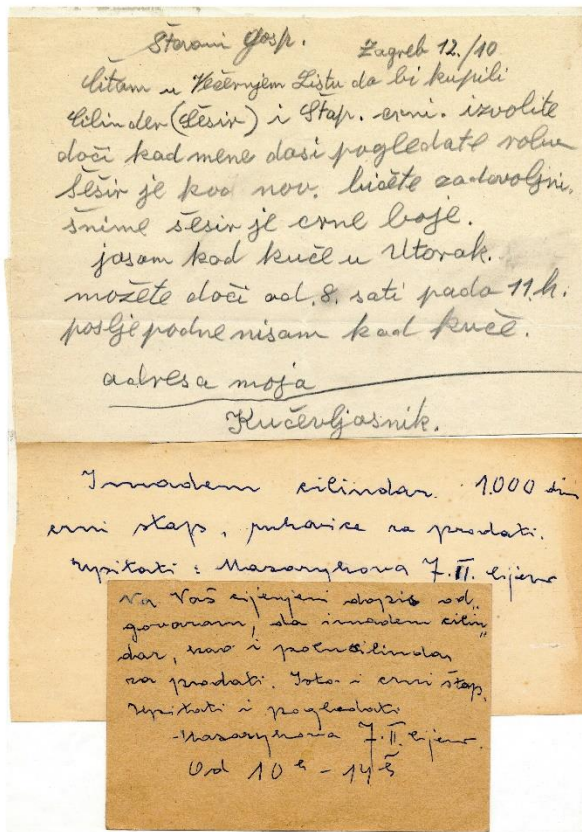 Štovani Gosp. Zagreb 12./10
čitam u Večernjem Listu da bi kupili
Cilinder (šešir) i Štap. crni. izvolite
doči kod mene dasi pogledate robu
šešir je kao nov. bičete zadovoljni.
šnime šešir je crne boje.
jasam kod kuče u Utorak.
možete doči od. 8. sati pado 11.h.
poslje podne nisam kod kuče.
adresa moja
Kučevljasnik.
Imadem cilindar. 1000 din
crni štap, rukavice za prodati.
Upitati: Masarykova 7. II. lijevo
Na Vaš cijenjeni dopis od„
govaram, da imadem cilin„
dar, kao i polucilindar
za prodati. Isto i crni štap.
Upitati i pogledati
-Masarykova 7. II. lijevo.
Od 10 h - 14 h